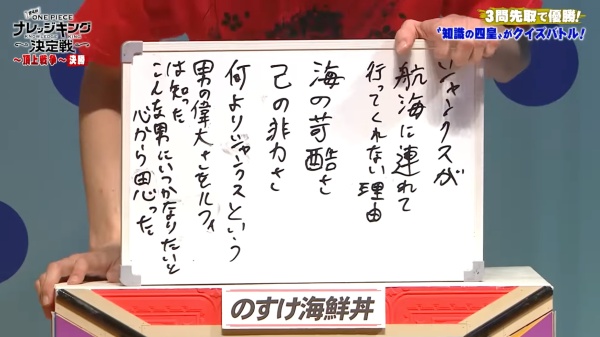 第4回 ONE PIECE
ナレッジキング
KNOWLEDGE KING
決定戦
~頂上戦争~ 決勝
3問先取で優勝!
"知識の四皇"がクイズバトル!
シャンクスが
航海に連れて
行ってくれない理由
海の苛酷さ
己の非力さ
何よりシャンクスという
男の偉大さをルフィ
は知った
こんな男にいつかなりたいと
心から思った。
のすけ海鮮丼